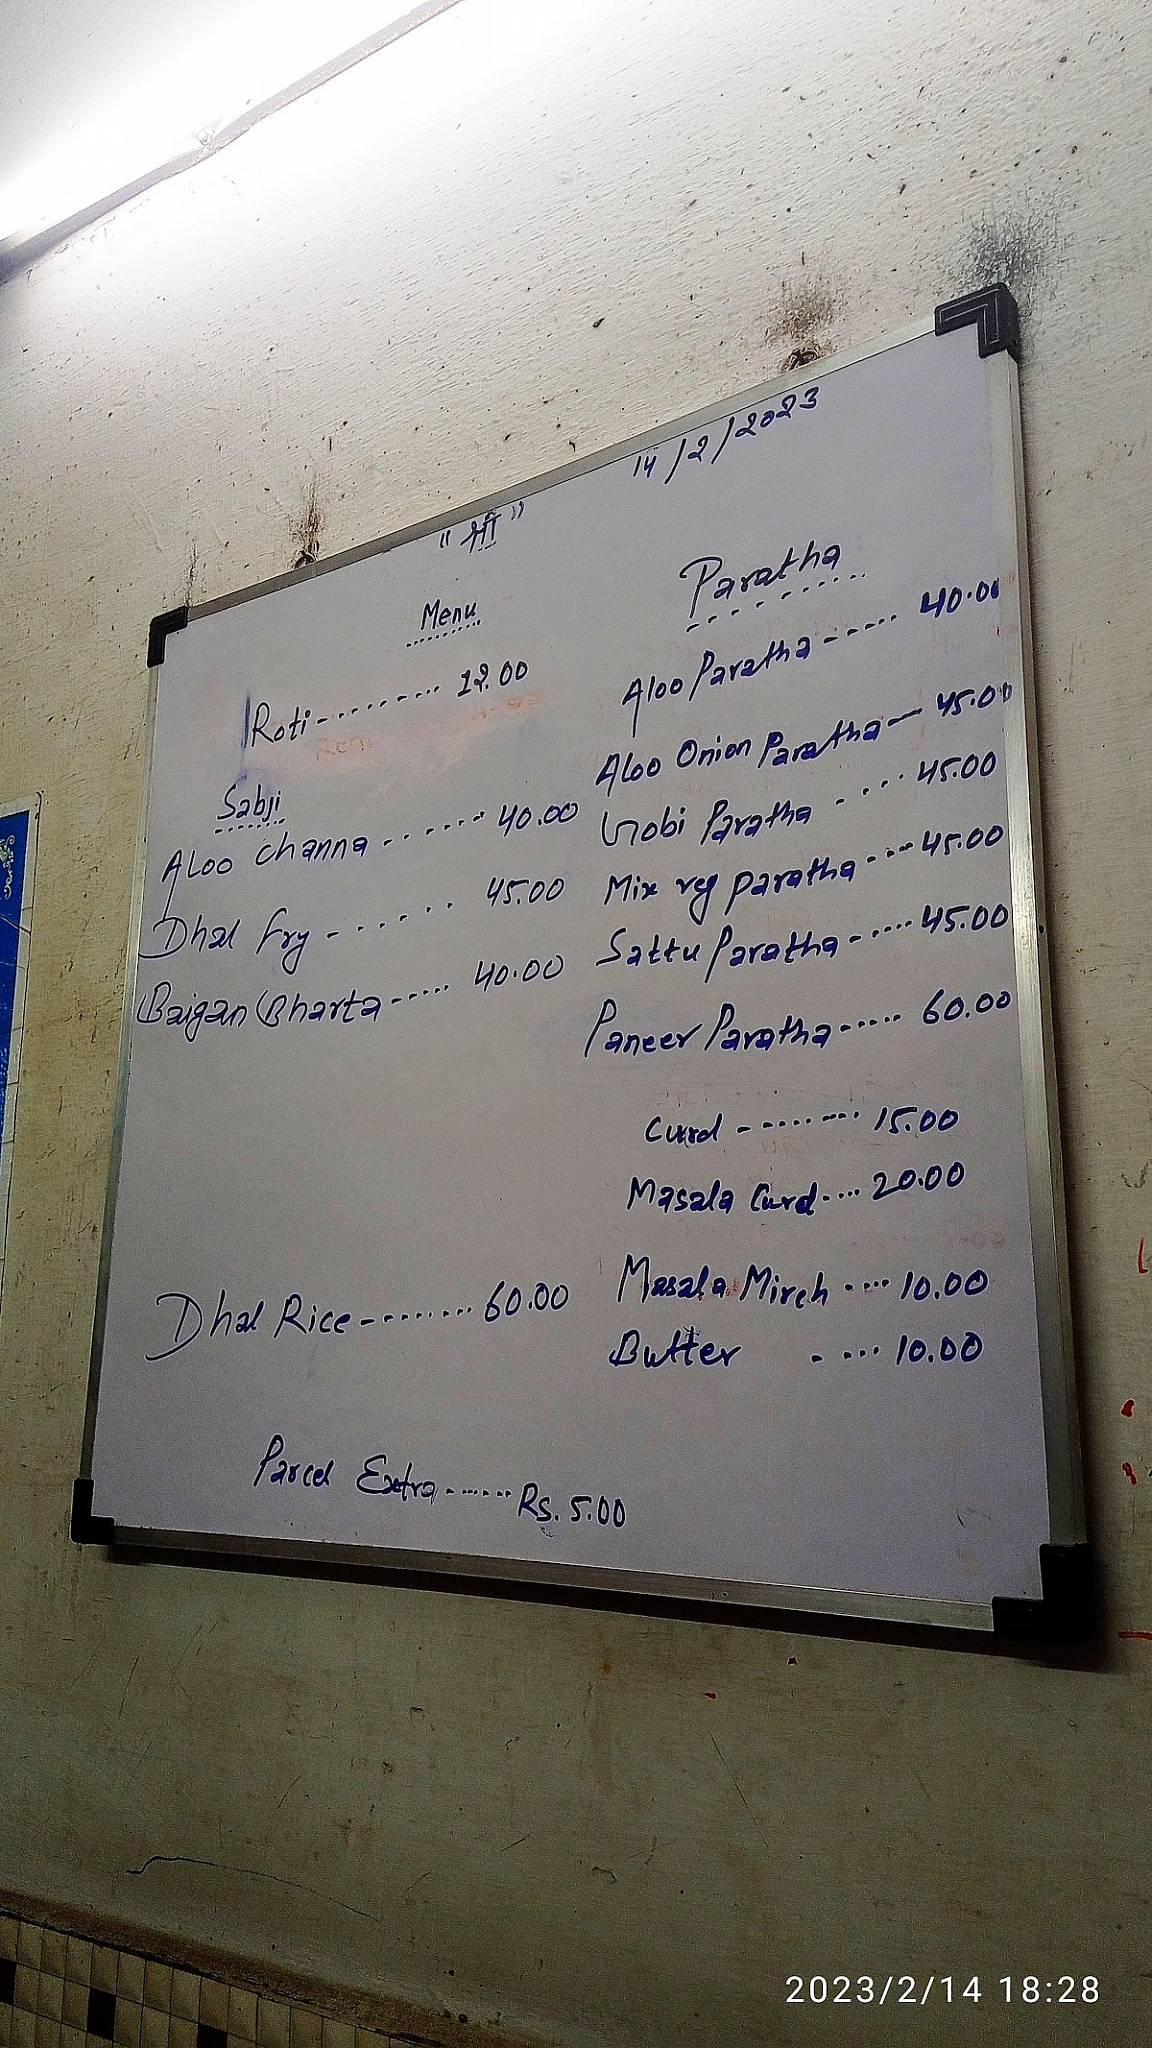 14/2/2023
"श्री"
Menu
Roti---------- 12.00
Sabji
Aloo channa ------- 40.00
Dhal Fry ------- 45.00
Baigan Bharta----- 40.00
Dhal Rice-------- 60.00
Paratha
Aloo Paratha ----- 40.00
Aloo Onion Paratha-- 45.00
Gobi Paratha ---- 45.00
Mix veg paratha---- 45.00
Sattu Paratha ----- 45.00
Paneer Paratha----- 60.00
Curd -------- 15.00
Masala Curd---- 20.00
Masala Mirch ---- 10.00
Butter ---- 10.00
Parcel Extra------ Rs. 5.00
2023/2/14 18:28